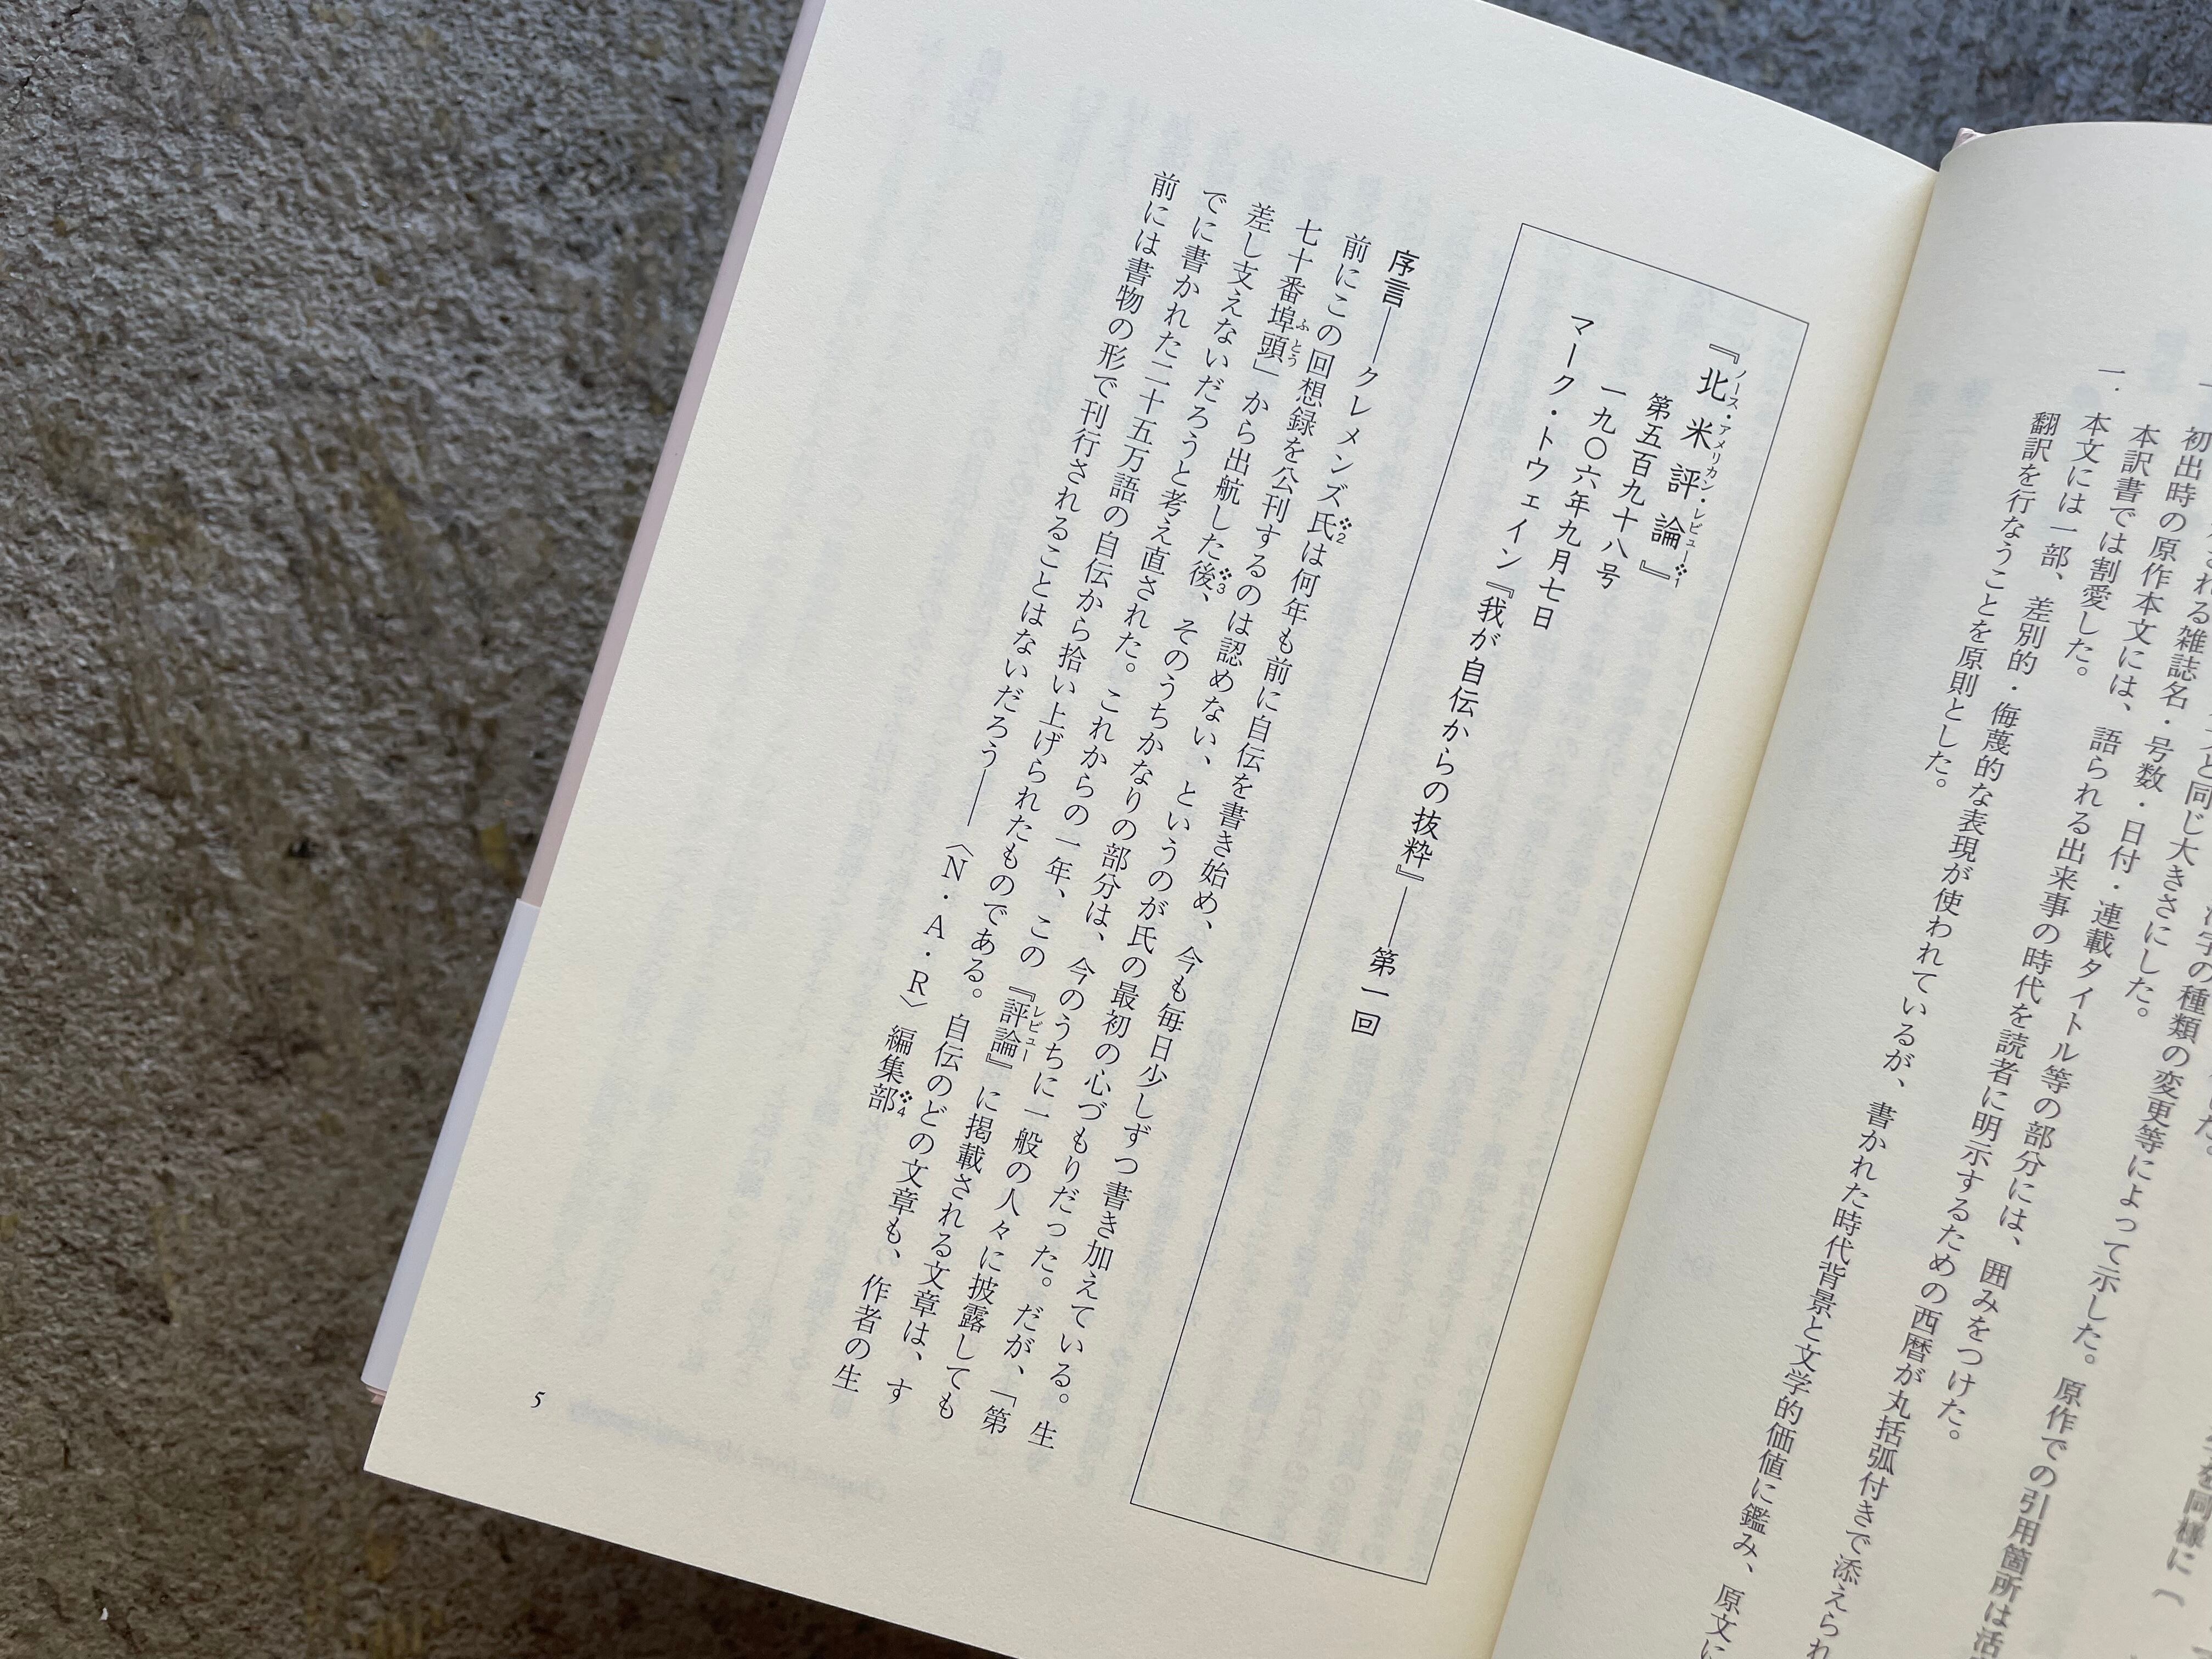 を同様に（
字の種類の変更等によって示した。原作での引用箇所は活
と同じ大きさにした。
れる雑誌名・号数・日付・連載タイトル等の部分には、囲みをつけた。
初出時の原作本文には、語られる出来事の時代を読者に明示するための西暦が丸括弧付きで添えられ
本訳書では割愛した。
一．本文には一部、差別的・侮蔑的な表現が使われているが、書かれた時代背景と文学的価値に鑑み、原文に
翻訳を行なうことを原則とした。
ノース・アメリカン・レビュー
『北米評論』※1
第五百九十八号
一九〇六年九月七日
マーク・トウェイン『我が自伝からの抜粋』――第一回
序言――クレメンズ氏※2は何年も前に自伝を書き始め、今も毎日少しずつ書き加えている。生
前にこの回想録を公刊するのは認めない、というのが氏の最初の心づもりだった。だが、「第
ふとう
七十番埠頭」から出航した※3後、そのうちかなりの部分は、今のうちに一般の人々に披露しても
レビュー
差し支えないだろうと考え直された。これからの一年、この『評論』に掲載される文章は、す
でに書かれた二十五万語の自伝から拾い上げられたものである。自伝のどの文章も、作者の生
前には書物の形で刊行されることはないだろう――〈N・A・R〉編集部※4
5